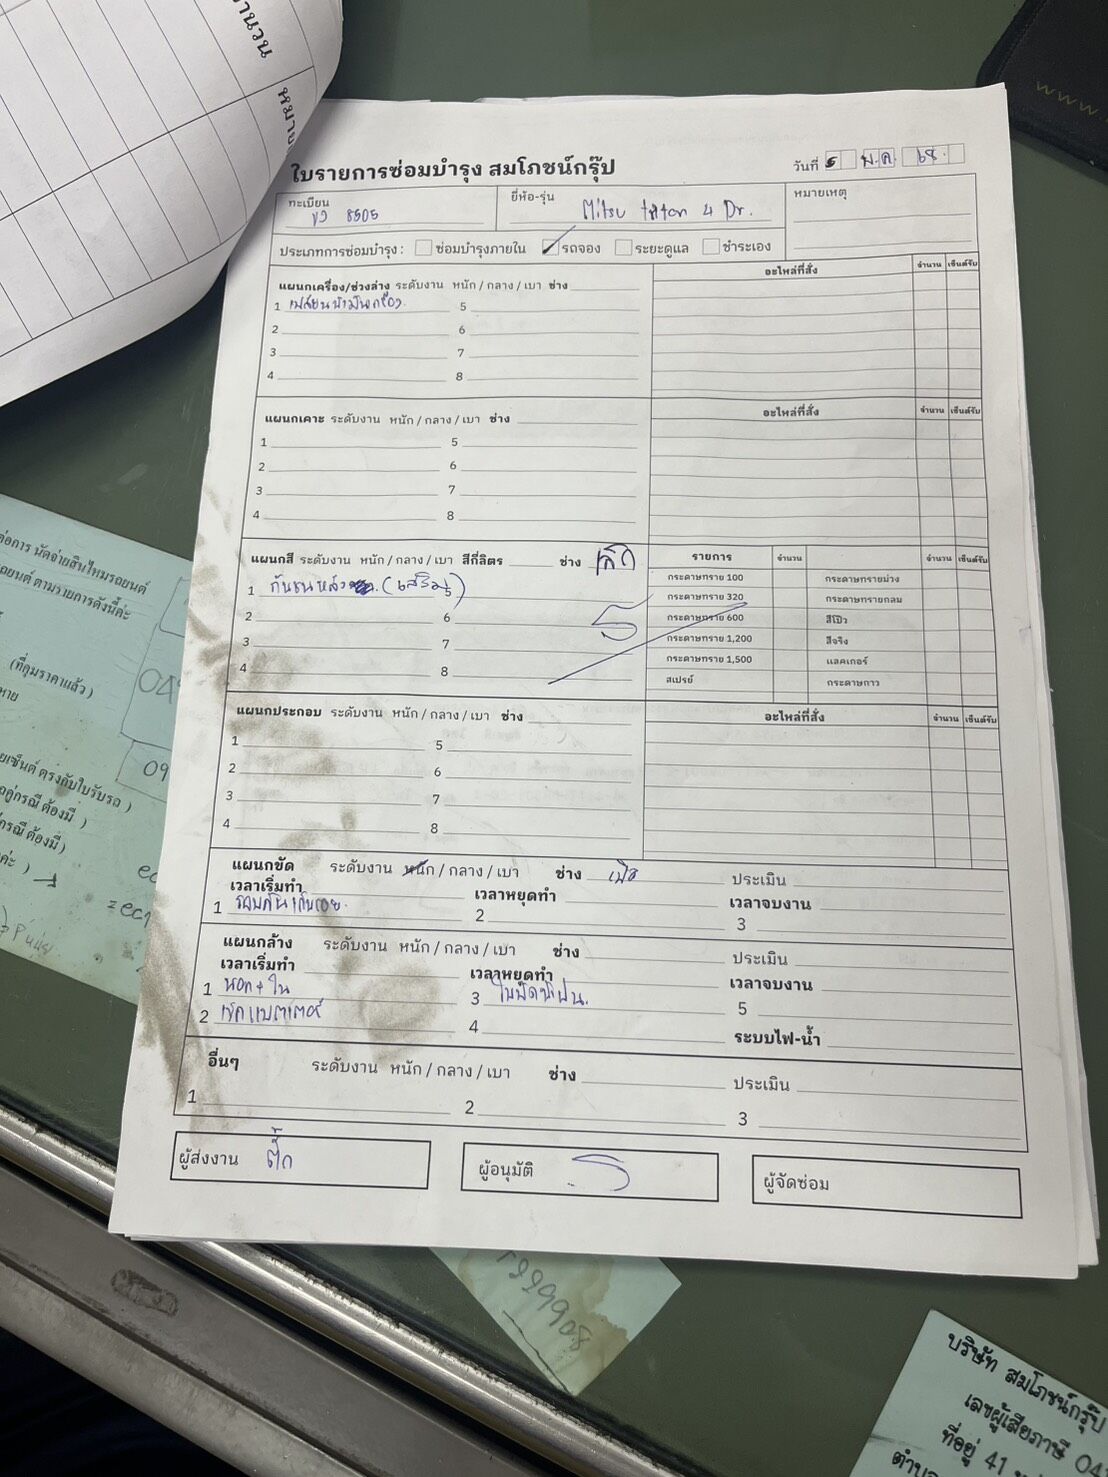 ำนวน
หมาย
ใบรายการซ่อมบำรุง สมโภชน์กรุ๊ป
วันที่ 6 พ.ค. 68
ทะเบียน 8505
ยี่ห้อ-รุ่น Mitsu triton 4 Dr.
หมายเหตุ
ประเภทการซ่อมบำรุง : ซ่อมบำรุงภายใน รถจอง ระยะดูแล ชำระเอง
แผนกเครื่อง/ช่วงล่าง ระดับงาน หนัก / กลาง / เบา ช่าง
อะไหล่ที่สั่ง จำนวน เซ็นต์รับ
1 เปลี่ยนน้ำมันเครื่อง 5
2 6
3 7
4 8
แผนกเคาะ ระดับงาน หนัก / กลาง / เบา ช่าง
อะไหล่ที่สั่ง จำนวน เซ็นต์รับ
1 5
2 6
3 7
4 8
แผนกสี ระดับงาน หนัก / กลาง / เบา สีกี่ลิตร ช่าง
รายการ จำนวน จำนวน เซ็นต์รับ
1 กันชนหลัง 5
2 6
3 7
4 8
กระดาษทราย 100 กระดาษทรายม่วง
กระดาษทราย 320 กระดาษทรายกลม
กระดาษทราย 600 สีโป๊ว
กระดาษทราย 1,200 สีจริง
กระดาษทราย 1,500 แลคเกอร์
สเปรย์ กระดาษกาว
แผนกประกอบ ระดับงาน หนัก / กลาง / เบา ช่าง
อะไหล่ที่สั่ง จำนวน เซ็นต์รับ
1 5
2 6
3 7
4 8
แผนกขัด ระดับงาน หนัก / กลาง / เบา ช่าง ประเมิน
เวลาเริ่มทำ เวลาหยุดทำ เวลาจบงาน
1 รอบคัน 2 3
แผนกล้าง ระดับงาน หนัก / กลาง / เบา ช่าง ประเมิน
เวลาเริ่มทำ เวลาหยุดทำ เวลาจบงาน
1 นอก + ใน 3 5
2 เช็คแบตเตอรี่ 4 ระบบไฟ-น้ำ
อื่นๆ ระดับงาน หนัก / กลาง / เบา ช่าง ประเมิน
1 2 3
ผู้ส่งงาน ตั๊ก
ผู้อนุมัติ
ผู้จัดซ่อม
ต่อการ นัดจ่ายสินไหมรถยนต์
รถยนต์ ตามรายการดังนี้ค่ะ
(ที่คุมราคาแล้ว)
หาย
09
เซ็นต์ ตรงกับใบรับรถ )
คู่กรณี ต้องมี )
กรณี ต้องมี)
ค่ะ )
บริษัท สมโภชน์กรุ๊ป
เลขผู้เสียภาษี 04
ที่อยู่ 41
ตำบล